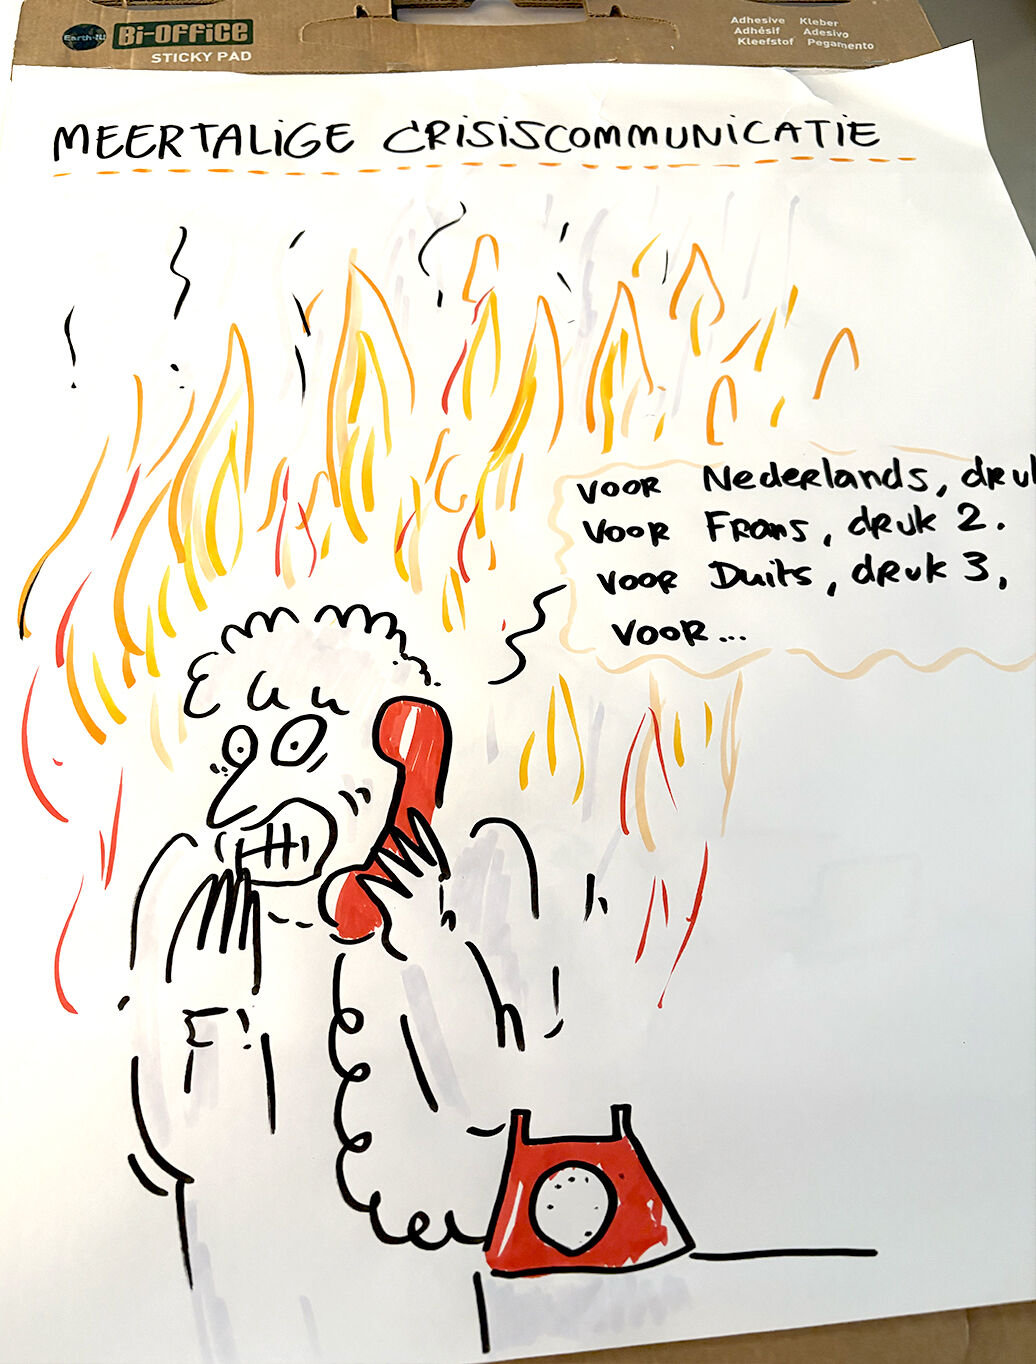 Earth-It
Bi-OFFiCE
STICKY PAD
Adhesive Kleber
Adhésif Adesivo
Kleefstof Pegamento
MEERTALiGE CRiSiSCOMMUNiCATiE
VOOR Nederlands, druk
VOOR Frans, druk 2.
VOOR Duits, druk 3,
VOOR...